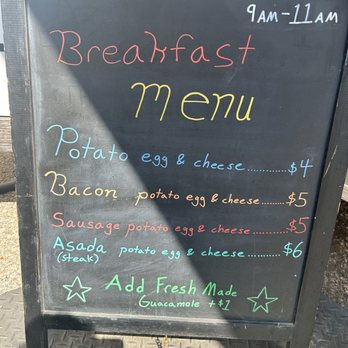 9AM-11AM
Breakfast
Menu
Potato egg & cheese............$4
Bacon potato egg & cheese........$5
Sausage potato egg & cheese........$5
Asada potato egg & cheese..........$6
(steak)
Add Fresh Made
Guacamole +$1